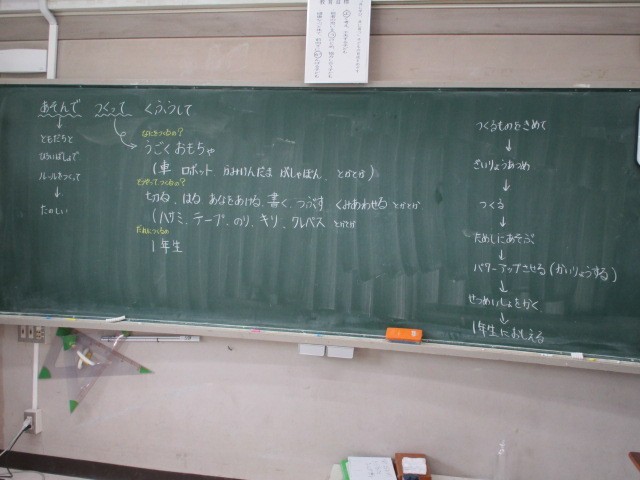 あそんで つくって くふうして
ともだちと
ひろいばしょで
ルールをつくって
たのしい
なにをつくる?
うごくおもちゃ
(車 ロボット かみけんだま とかとか)
どうやってつくるの?
切る、はる、あなをあける、書く、つぶす、くみあわせる とかとか
(ハサミ、テープ、のり、キリ、クレパス とかとか
だれにつくるの
1年生
つくるものをきめて
ざいりょうあつめ
つくる
ためしにあそぶ
パワーアップさせる(かいりょうする)
せつめいしょをかく
1年生におしえる